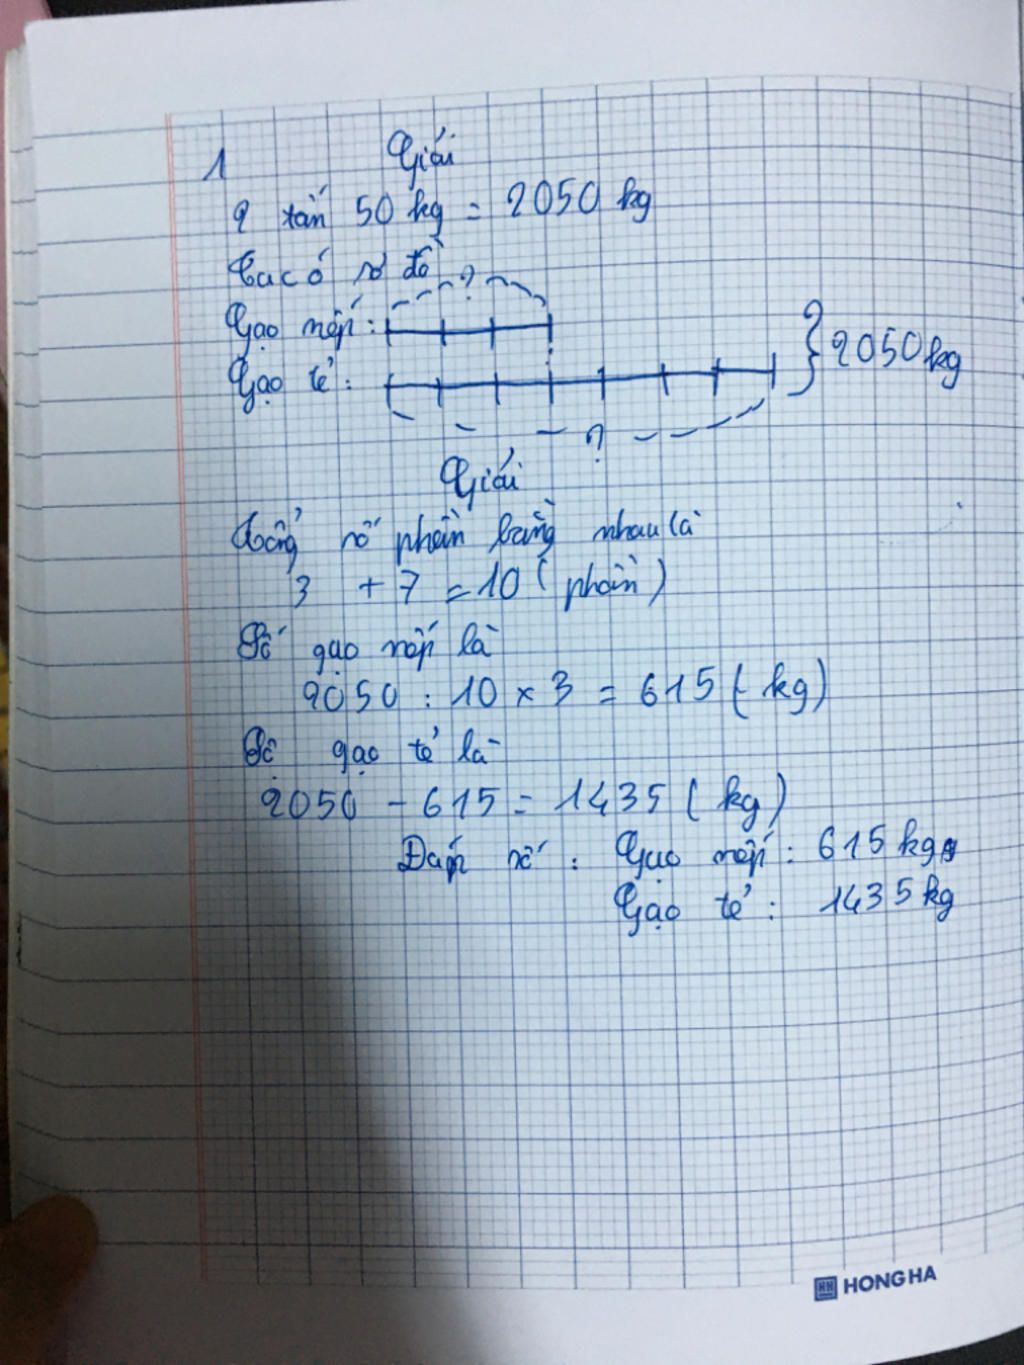 1 Giải
2 tấn 50 kg = 2050 kg
Ta có sơ đồ
?
Gạo nếp :
Gạo tẻ :
2050 kg
?
Giải
Tổng số phần bằng nhau là
3 + 7 = 10 ( phần )
Số gạo nếp là
2050 : 10 x 3 = 615 ( kg )
Số gạo tẻ là
2050 - 615 = 1435 ( kg )
Đáp số : Gạo nếp : 615 kg
Gạo tẻ : 1435 kg
HH HONG HA